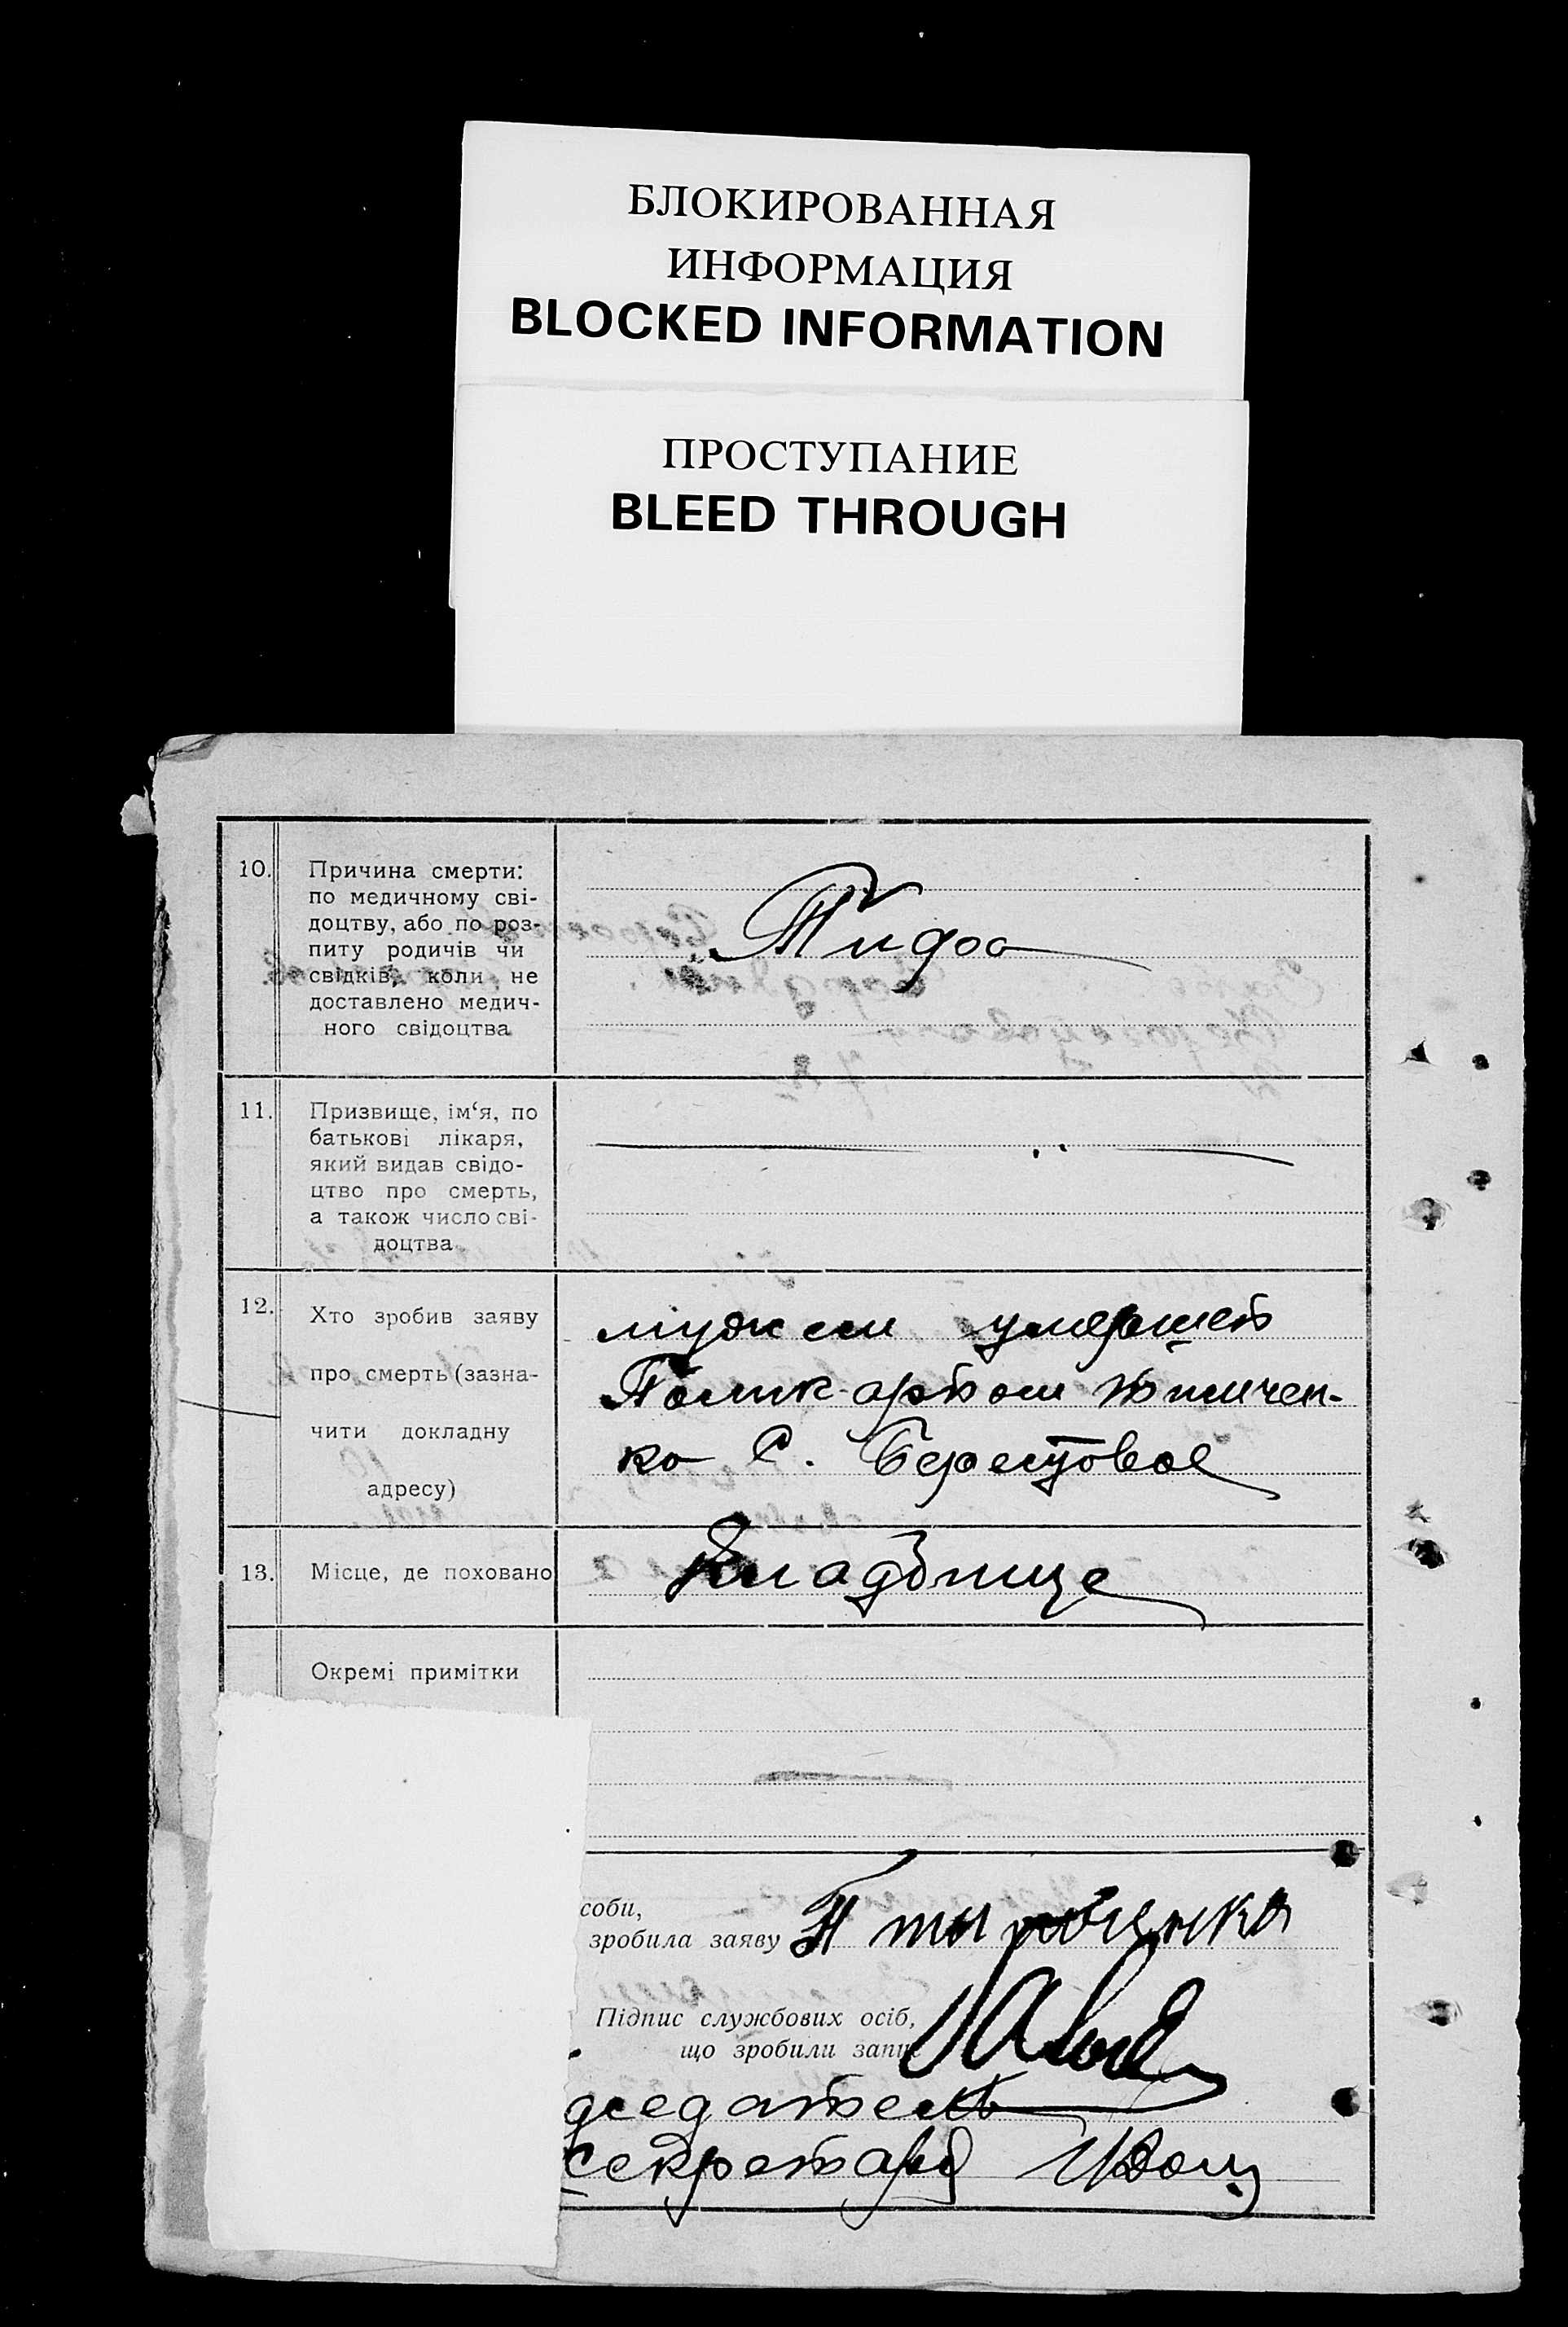 БЛОКИРОВАННАЯ
ИНФОРМАЦИЯ
BLOCKED INFORMATION
ПРОСТУПАНИЕ
BLEED THROUGH
10. Причина смерти:
по медичному сві-
доцтву, або по роз-
питу родичів чи
свідків, коли не
доставлено медич-
ного свідоцтва
11. Призвище, ім‘я, по
батькові лікаря,
який видав свідо-
цтво про смерть,
а також число сві-
доцтва
12. Хто зробив заяву
про смерть (зазна-
чити докладну
адресу)
мужем умершей
Поликарпом
ко С. Берестовое
13. Місце, де поховано
кладбище
Окремі примітки
соби,
зробила заяву П
Підпис службових осіб,
що зробили запис
дседатель
секретарь